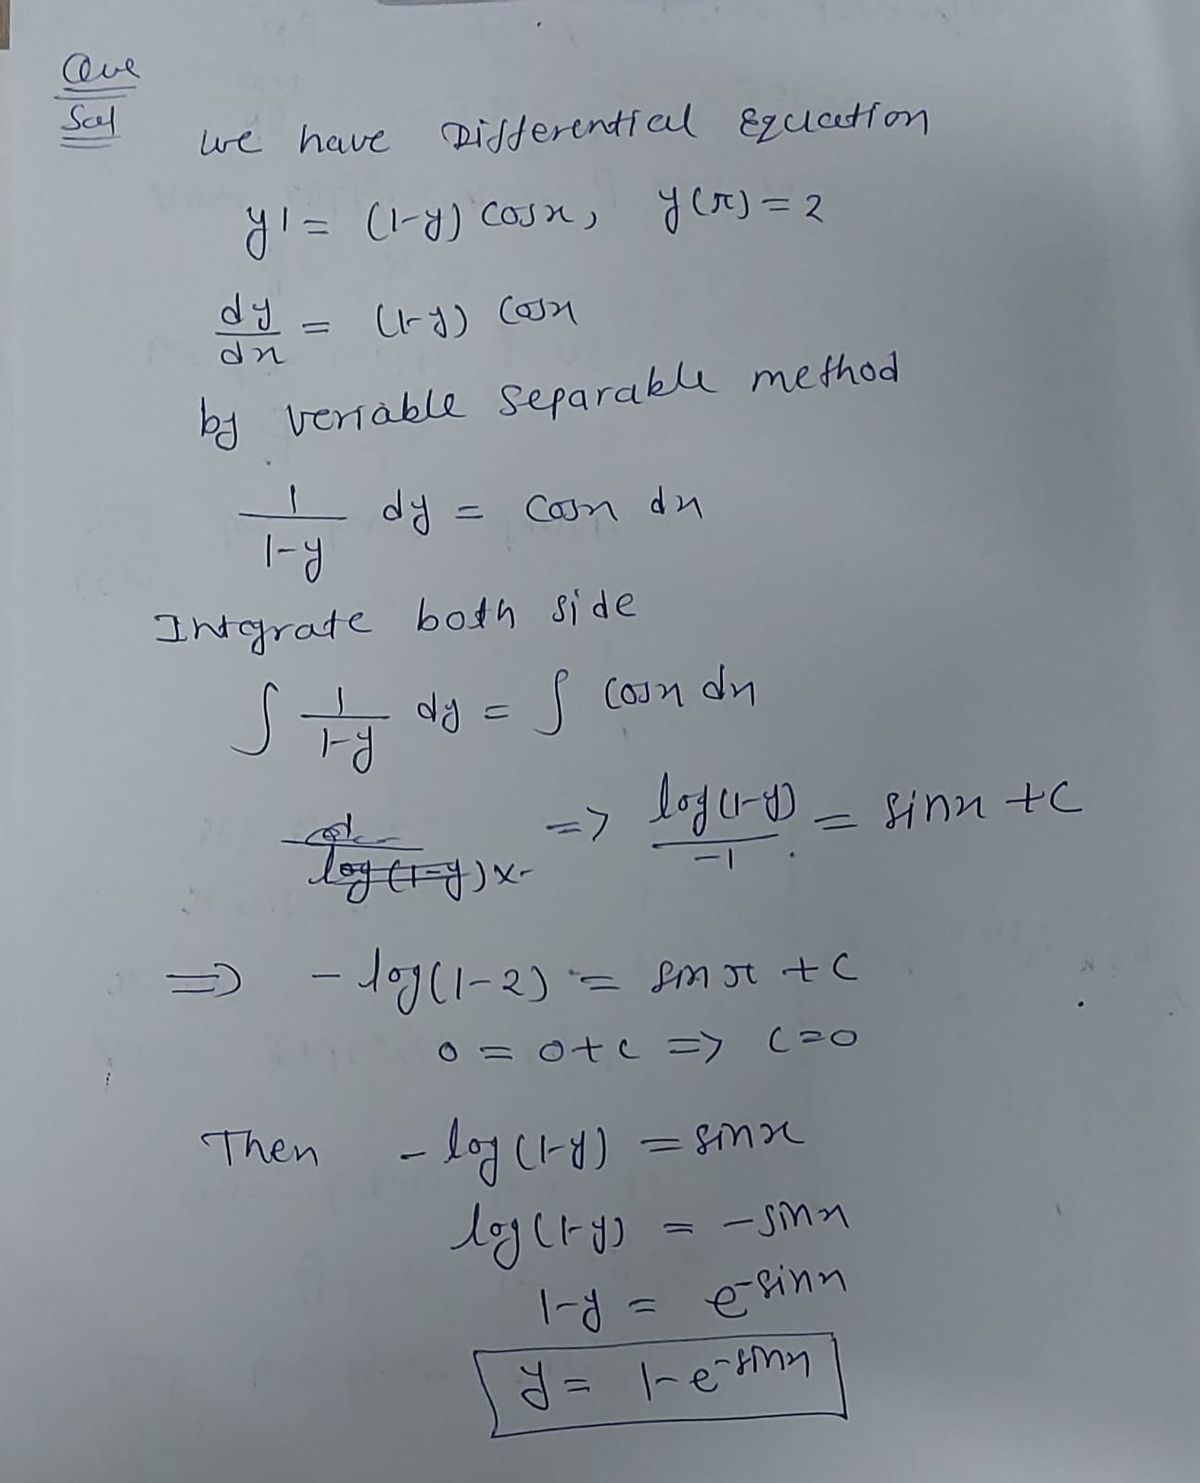 Que
Sol
we have Differential Equation
y' = (1-y) cosx, y(π) = 2
dy/dx = (1-y) cosx
by veriable separable method
1/(1-y) dy = cosx dx
Integrate both side
∫ 1/(1-y) dy = ∫ cosx dx
log(1-y)x-
=> log(1-y)/-1 = sinx + C
=> - log(1-2) = sin π + C
0 = 0 + c => C = 0
Then - log(1-y) = sinx
log(1-y) = - sinx
1-y = e^-sinx
y = 1-e^-sinx